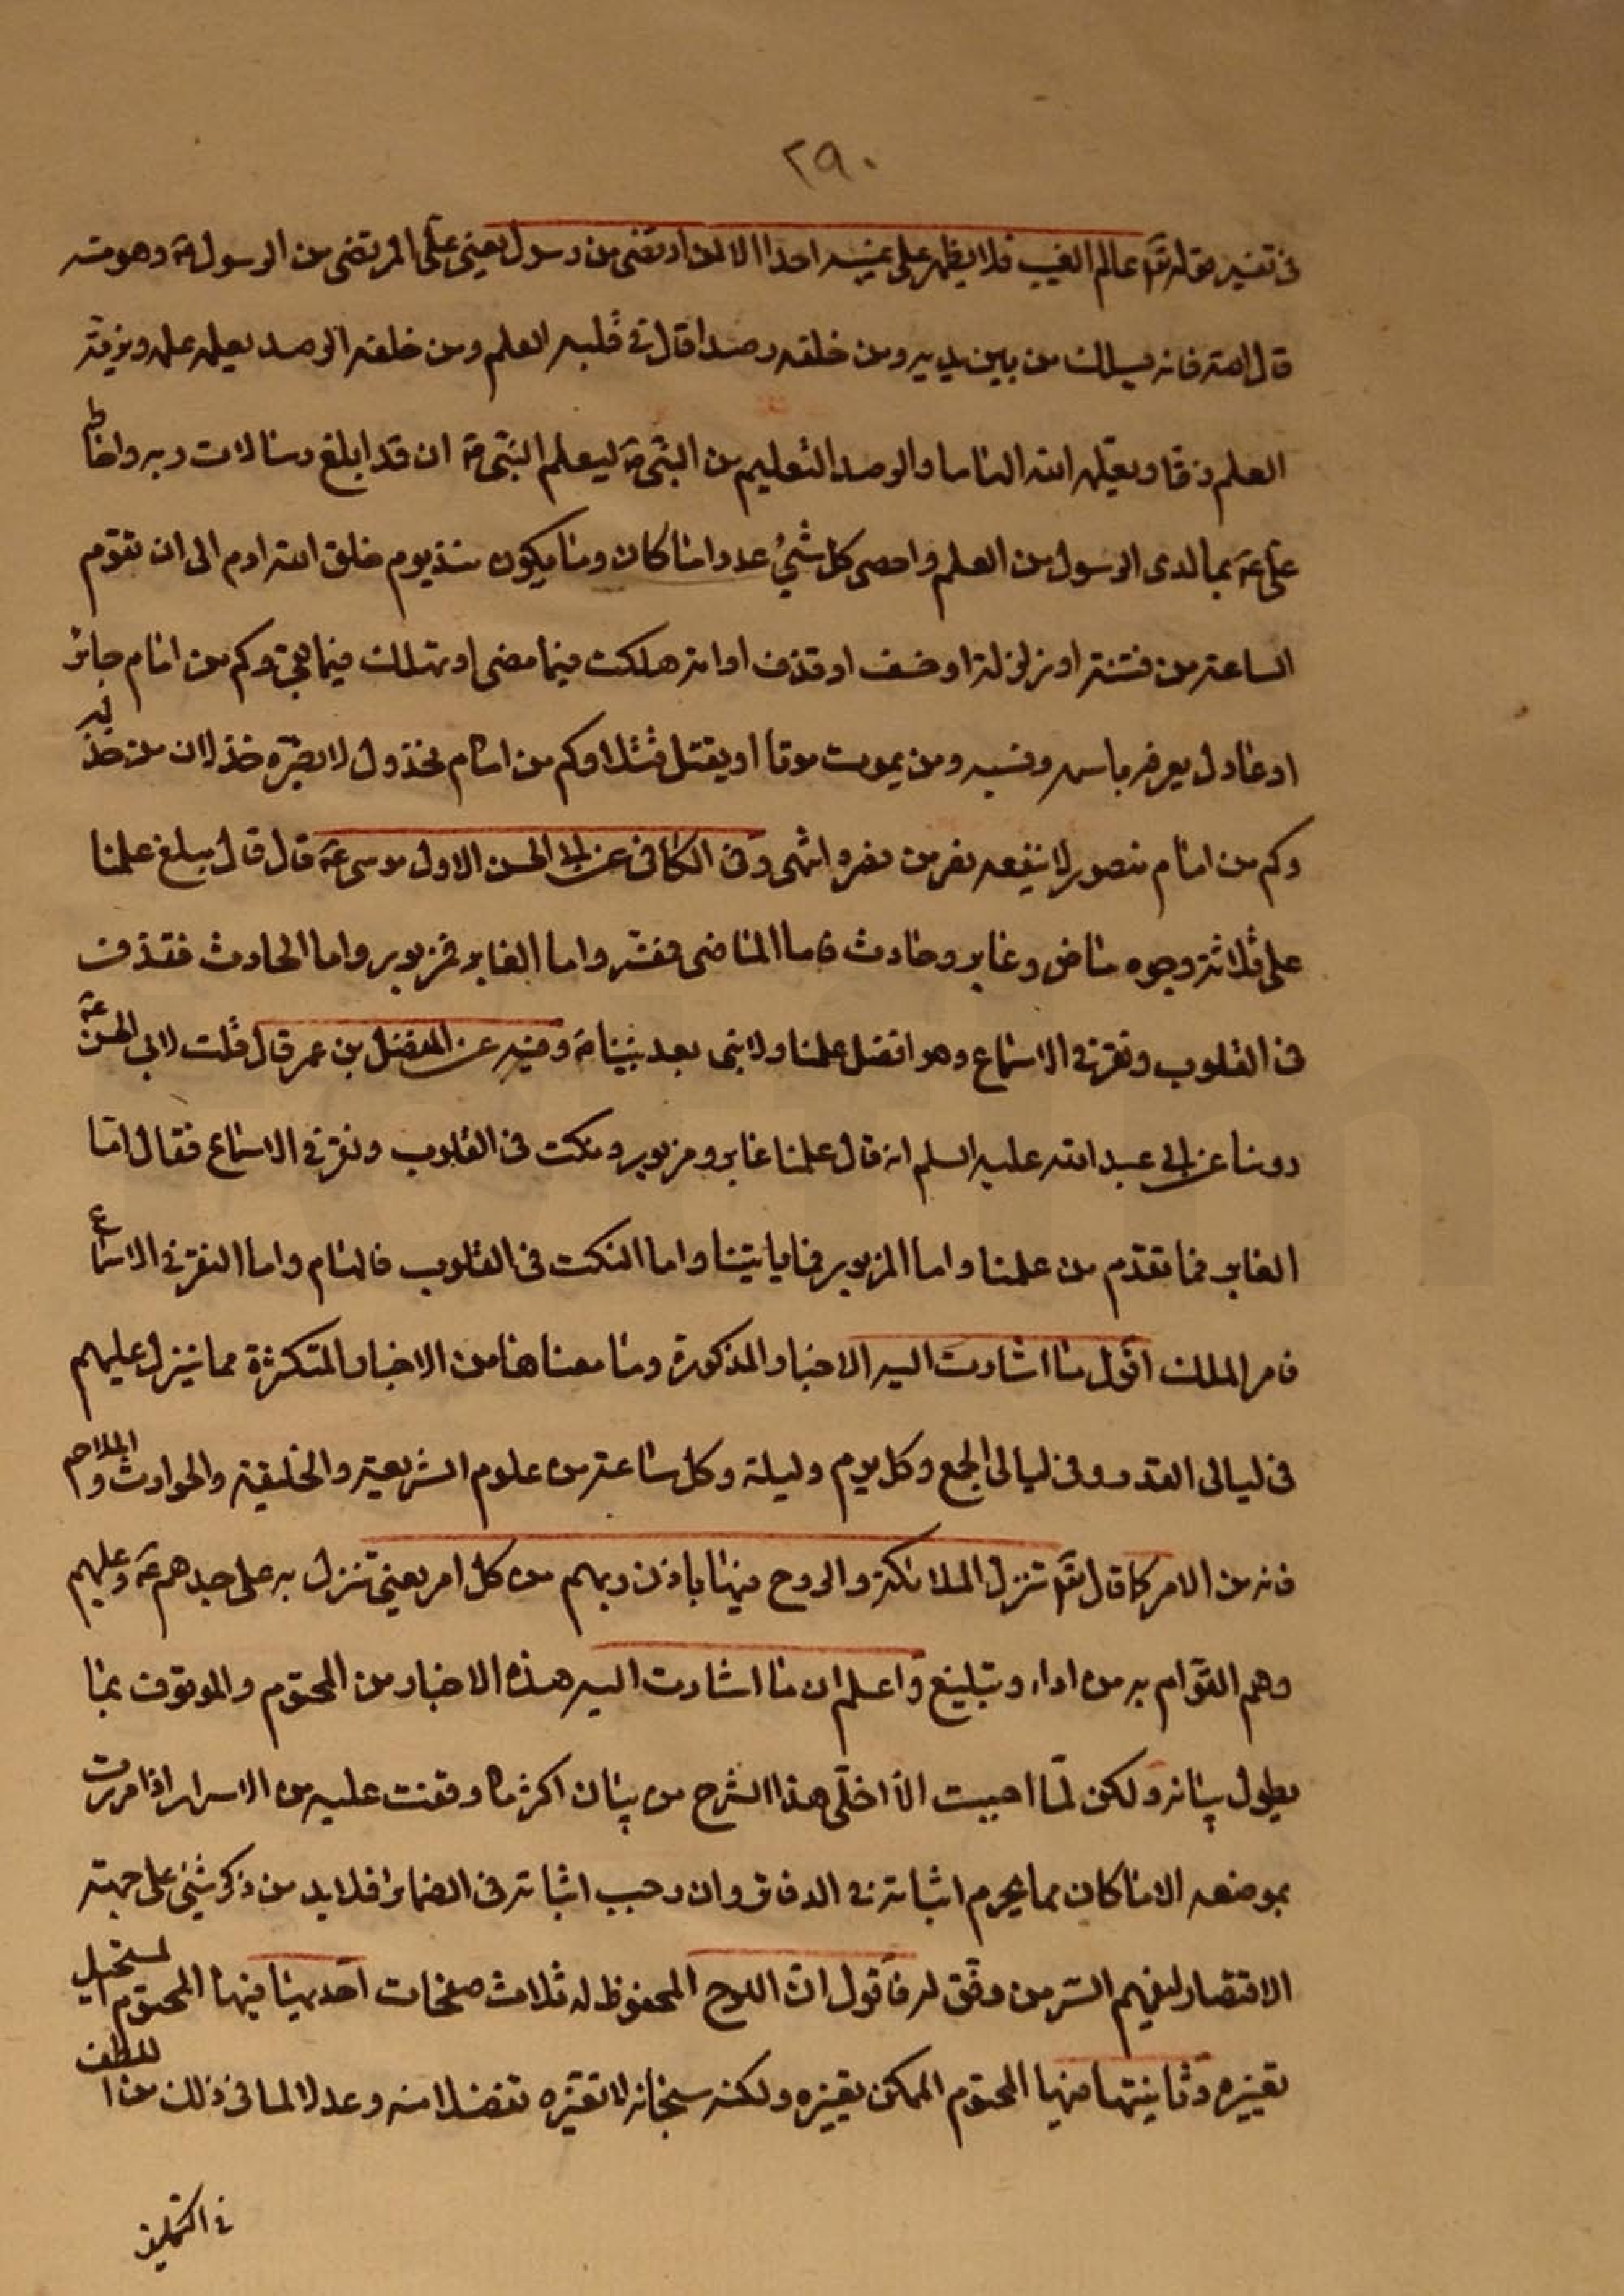 ٢٩٠
فى تفسير قوله تعَ عالم الغيب فلا يظهر على غيبه احدا الا من ارتضى من رسول يعنى علىّ المرتضى من الرسول ص وهو منه
قال الله فانه يسلك من بين يديه ومن خلفه رصدا قال فى قلبه العلم ومن خلفه الرصد يعلمه علمه ويزقه
العلم زقا ويعلمه الله الهاما والرصد التعليم من النبى ص ليعلم النبى ص ان قد ابلغ رسالات ربه واحاط
علىّ ع بما لدى الرسول من العلم واحصى كل شئ عددا ما كان وما يكون منذ يوم خلق الله ادم الى ان تقوم
الساعة من فتنة او زلزلة او خسف او قذف او امة هلكت فيما مضى او تهلك فيما بقى وكم من امام جائر
او عادل يعرفه باسمه ونسبه ومن يموت موتا او يقتل قتلا وكم من امام مخذول لا يضره خذلان من خذله
وكم من امام منصور لا ينفعه نصر من نصره انتهى وفى الكافى عن ابى الحسن الاول موسى ع قال قال مبلغ علمنا
على ثلاثة وجوه ماض وغابر وحادث فاما الماضى فمفسّر واما الغابر فمزبور واما الحادث فقذف
فى القلوب ونقر فى الاسماع وهو افضل علمنا ولا نبى بعد نبينا ص وفيه عن المفضل بن عمر قال قلت لابى الحسن ع
روينا عن ابى عبد الله عليه السلم انه قال علمنا غابر ومزبور ونكت فى القلوب ونقر فى الاسماع فقال امّا
الغابر فما تقدم من علمنا واما المزبور فما ياتينا واما النكت فى القلوب فالهام واما النقر فى الاسماع
فامر الملك اقول ما اشارت اليه الاخبار المذكورة وما معناها من الاخبار المتكثرة مما ينزل عليهم
فى ليالى القدر وفى ليالى الجمع وكل يوم وليلة وكل ساعة من علوم الشريعة والخليقة والحوادث والملاحم
فانه من الامر كما قال تعَ تنزل الملائكة والروح فيها باذن ربهم من كل امر يعنى تنزل به على جدهم ص وعليهم
وهم القوّام به من اداء وتبليغ واعلم ان ما اشارت اليه هذه الاخبار من المحتوم والموقوف مما
يطول بيانه ولكن لمّا احببت الّا اخلّى هذا الشرح من بيان اكثر ما وقفت عليه من الاسرار اذا مررت
بموضعه الا ما كان مما يحرم اثباته فى الدفاتر وان وجب اثباته فى الضماير فلا بد من ذكر شئ على جهة
الاقتصار ليفهم السر من وفّق له فاقول انّ اللوح المحفوظ له ثلاث صفحات احديها فيها المحتوم المستحيل
تغييره وثانيتها فيها المحتوم الممكن تغييره ولكنه سبحانه لا تغيّره تفضلا منه وعدلا لما فى ذلك من اللطف
فى التكليف